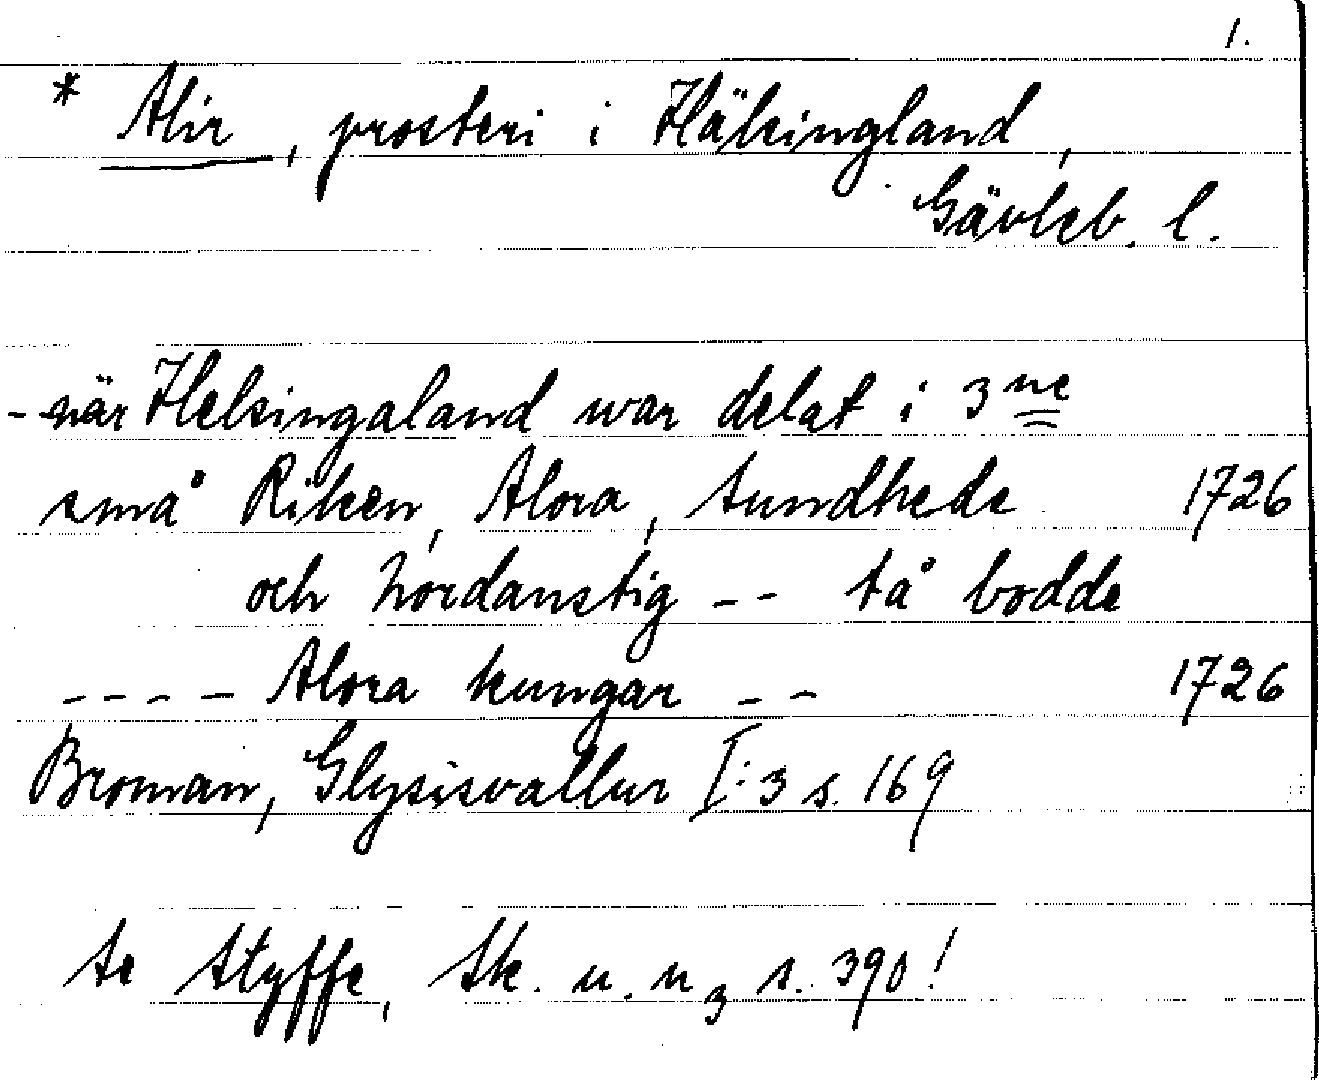 1.
* Alir, prosteri i Hälsingland,
Gävleb. l.
- när Helsingaland war delat i 3ne
små Riken, Alora, Sundhede 1726
och Nordanstig -- tå bodde
---- Alora kungar -- 1726
Broman, Glysisvallur I:3 s. 169
Se Styffe, Sk. u. u3 s. 390!